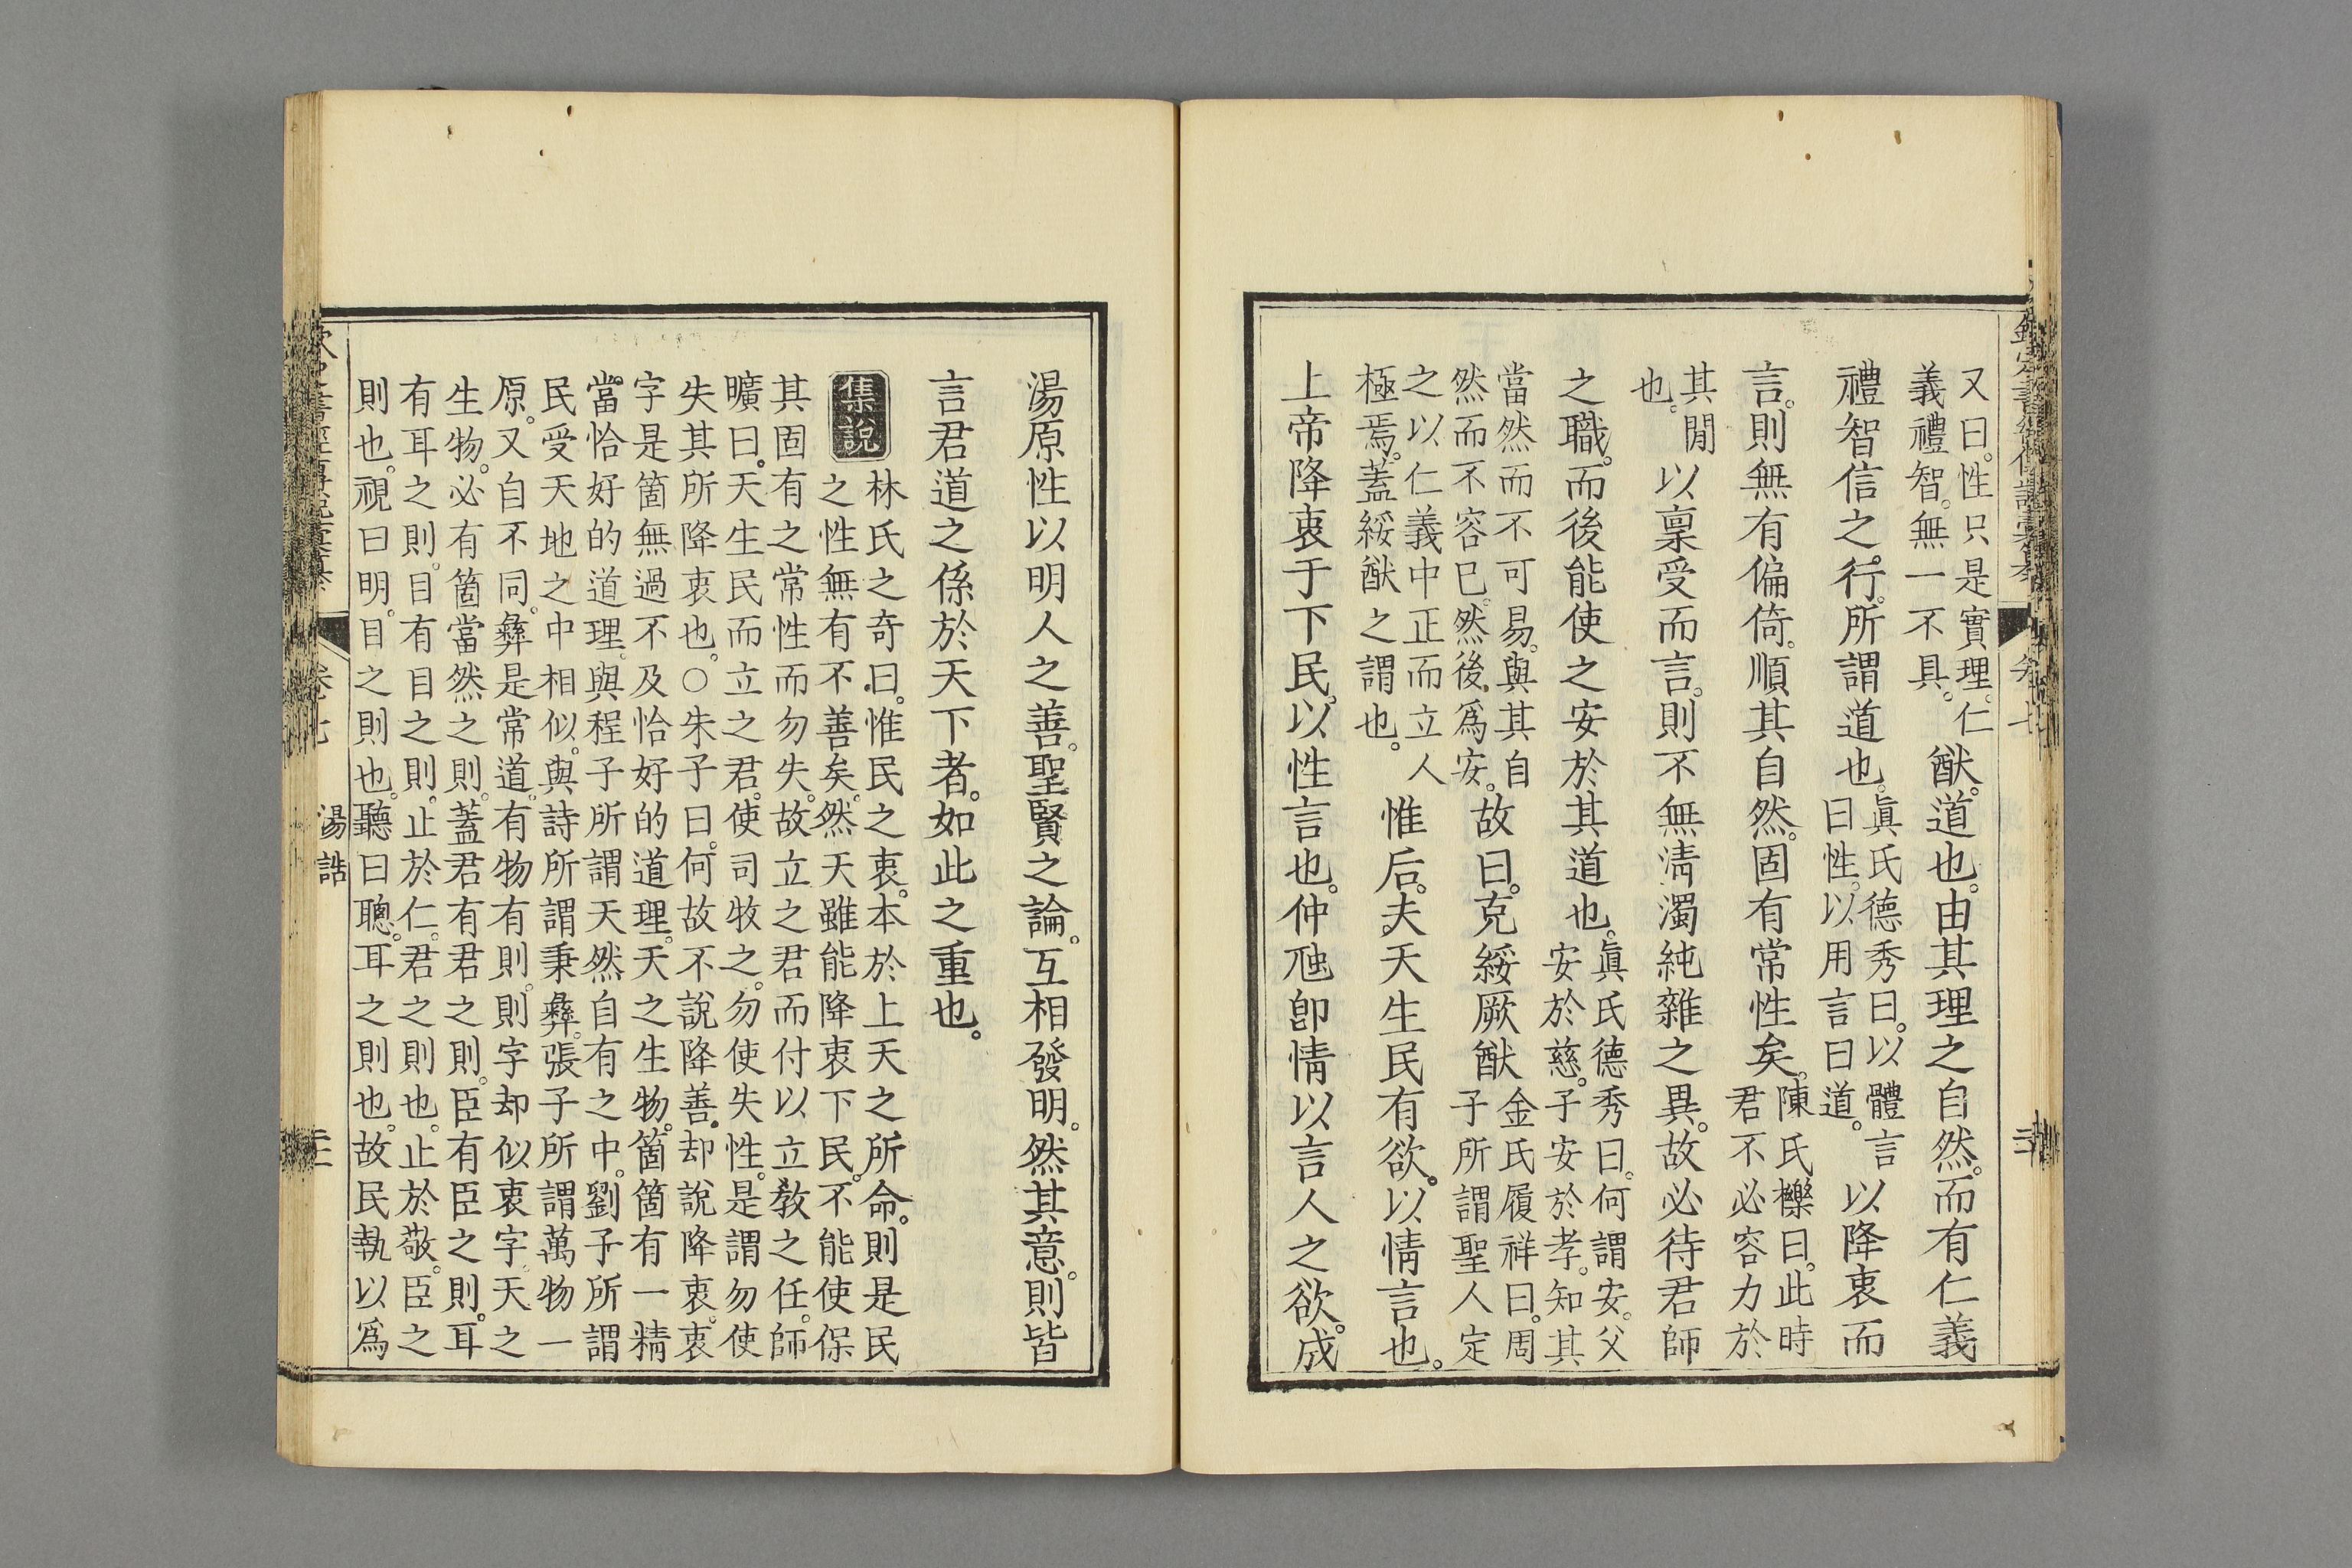 又曰。性只是實理。仁
義禮智。無一不具。
猷。道也。由其理之自然。而有仁義
禮智信之行。所謂道也。
眞氏德秀曰。以體言
曰性。以用言曰道。
以降衷而
言。則無有偏倚。順其自然。固有常性矣。
陳氏櫟曰。此時
君不必容力於
其閒
也。
以稟受而言。則不無淸濁純雜之異。故必待君師
之職。而後能使之安於其道也。
眞氏德秀曰。何謂安。父
安於慈。子安於孝。知其
當然而不可易。與其自
然而不容已。然後爲安。
故曰。克綏厥猷
金氏履祥曰。周
子所謂聖人定
之以仁義中正而立人
極焉。蓋綏猷之謂也。
惟后。夫天生民有欲。以情言也。
上帝降衷于下民。以性言也。仲虺卽情以言人之欲。成
湯原性以明人之善。聖賢之論。互相發明。然其意。則皆
言君道之係於天下者。如此之重也。
集說
林氏之奇曰。惟民之衷。本於上天之所命。則是民
之性無有不善矣。然天雖能降衷下民。不能使保
其固有之常性而勿失。故立之君而付以立教之任。師
曠曰。天生民而立之君。使司牧之。勿使失性。是謂勿使
失其所降衷也。○朱子曰。何故不說降善。却說降衷。衷
字是箇無過不及恰好的道理。天之生物。箇箇有一精
當恰好的道理。與程子所謂天然自有之中。劉子所謂
民受天地之中相似。與詩所謂秉彝。張子所謂萬物一
原。又自不同。彝是常道。有物有則。則字却似衷字。天之
生物。必有箇當然之則。蓋君有君之則。臣有臣之則。耳
有耳之則。目有目之則。止於仁。君之則也。止於敬。臣之
則也。視曰明。目之則也。聽曰聰。耳之則也。故民執以爲
卷七
湯誥